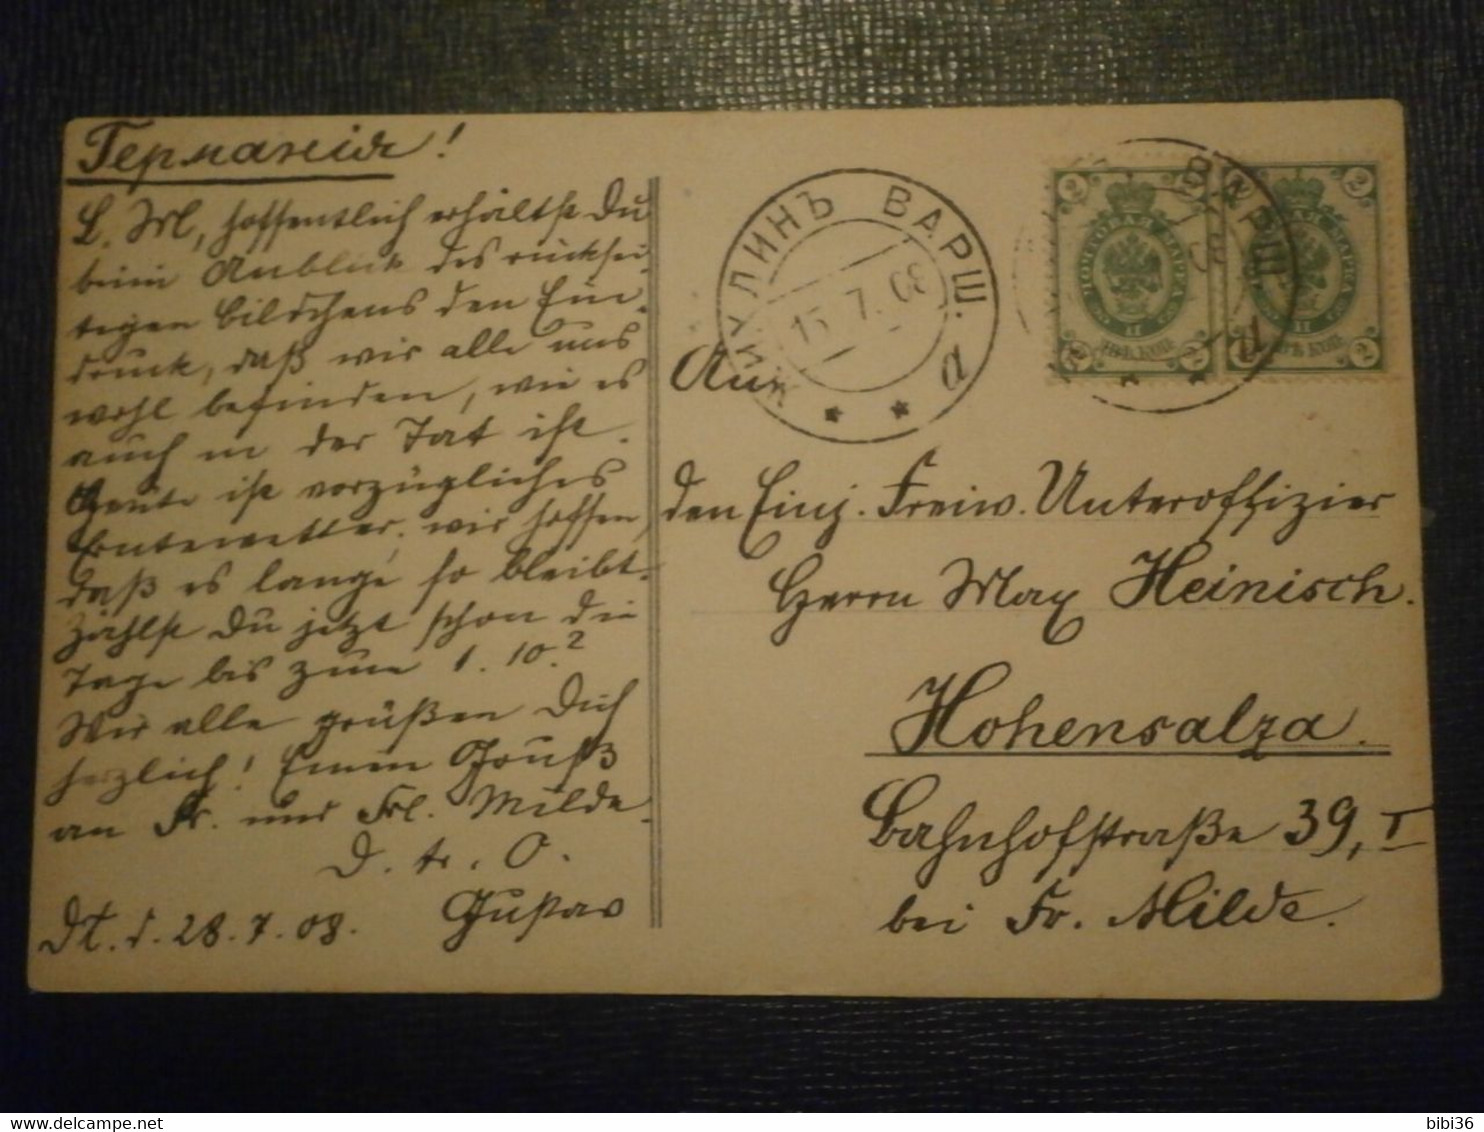 Германія!
L. M, hoffentlich erhältst Du
beim Anblick des rücksei-
tigen Bildchens den Ein-
druck, daß wir alle uns
wohl befinden, wie es
auch in der Tat ist.
Heute ist vorzügliches
Erntewetter, wir hoffen,
daß es lange so bleibt.
Zählst Du jetzt schon die
Tage bis zum 1. 10.?
Wir alle grüßen Dich
herzlich! Einen Gruß
an Fr. und Frl. Milde.
D. tr. O.
Gustav
28.7.08.
ВАРШ. а
15 7. 08
ВАРШ
2
2
ПОЧТОВАЯ МАРКА
ДВѢ КОП.
2
2
An
den Einj. Freiw. Unteroffizier
Herrn Max Heinisch.
Hohensalza.
Bahnhofstraße 39, I
bei Fr. Milde.
bibi36